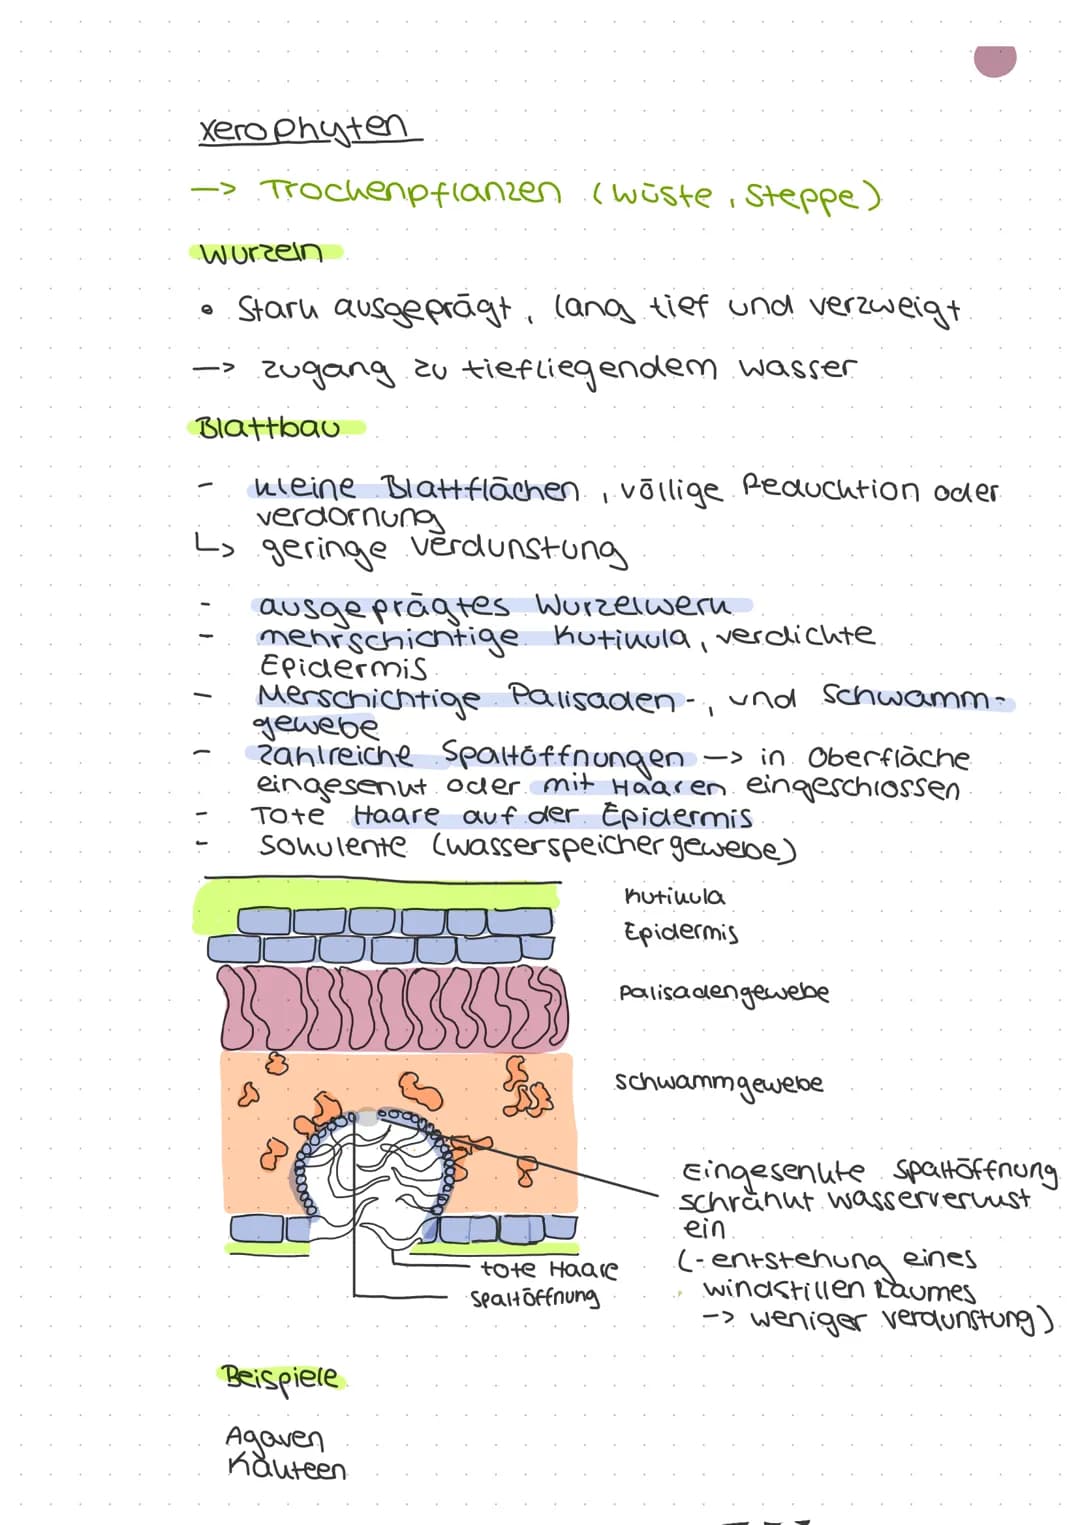 Xerophyten
—> Trockenpflanzen (Wüste, Steppe)
Wurzeln
• Stark ausgeprägt, lang tief und verzweigt
—> Zugang zu tiefliegendem Wasser
Blattbau
- kleine Blattflächen, völlige Reduchtion oder
verdornung
↳ geringe Verdunstung
- ausgeprägtes Wurzelwerk
- mehrschichtige Kutikula, verdichte
Epidermis
- Merschichtige Palisaden-, und Schwamm-
gewebe
- Zahlreiche Spaltöffnungen —> in Oberfläche
eingesenkt oder mit Haaren eingeschlossen
- Tote Haare auf der Epidermis
- Sokulente (wasserspeichergewebe)
Kutikula
Epidermis
Palisadengewebe
Schwammgewebe
Eingesenkte Spaltöffnung
schränkt wasserverlust
ein
(- entstehung eines
windstillen Raumes
—> weniger Verdunstung)
tote Haare
Spaltöffnung
Beispiele
Agaven
Kakteen